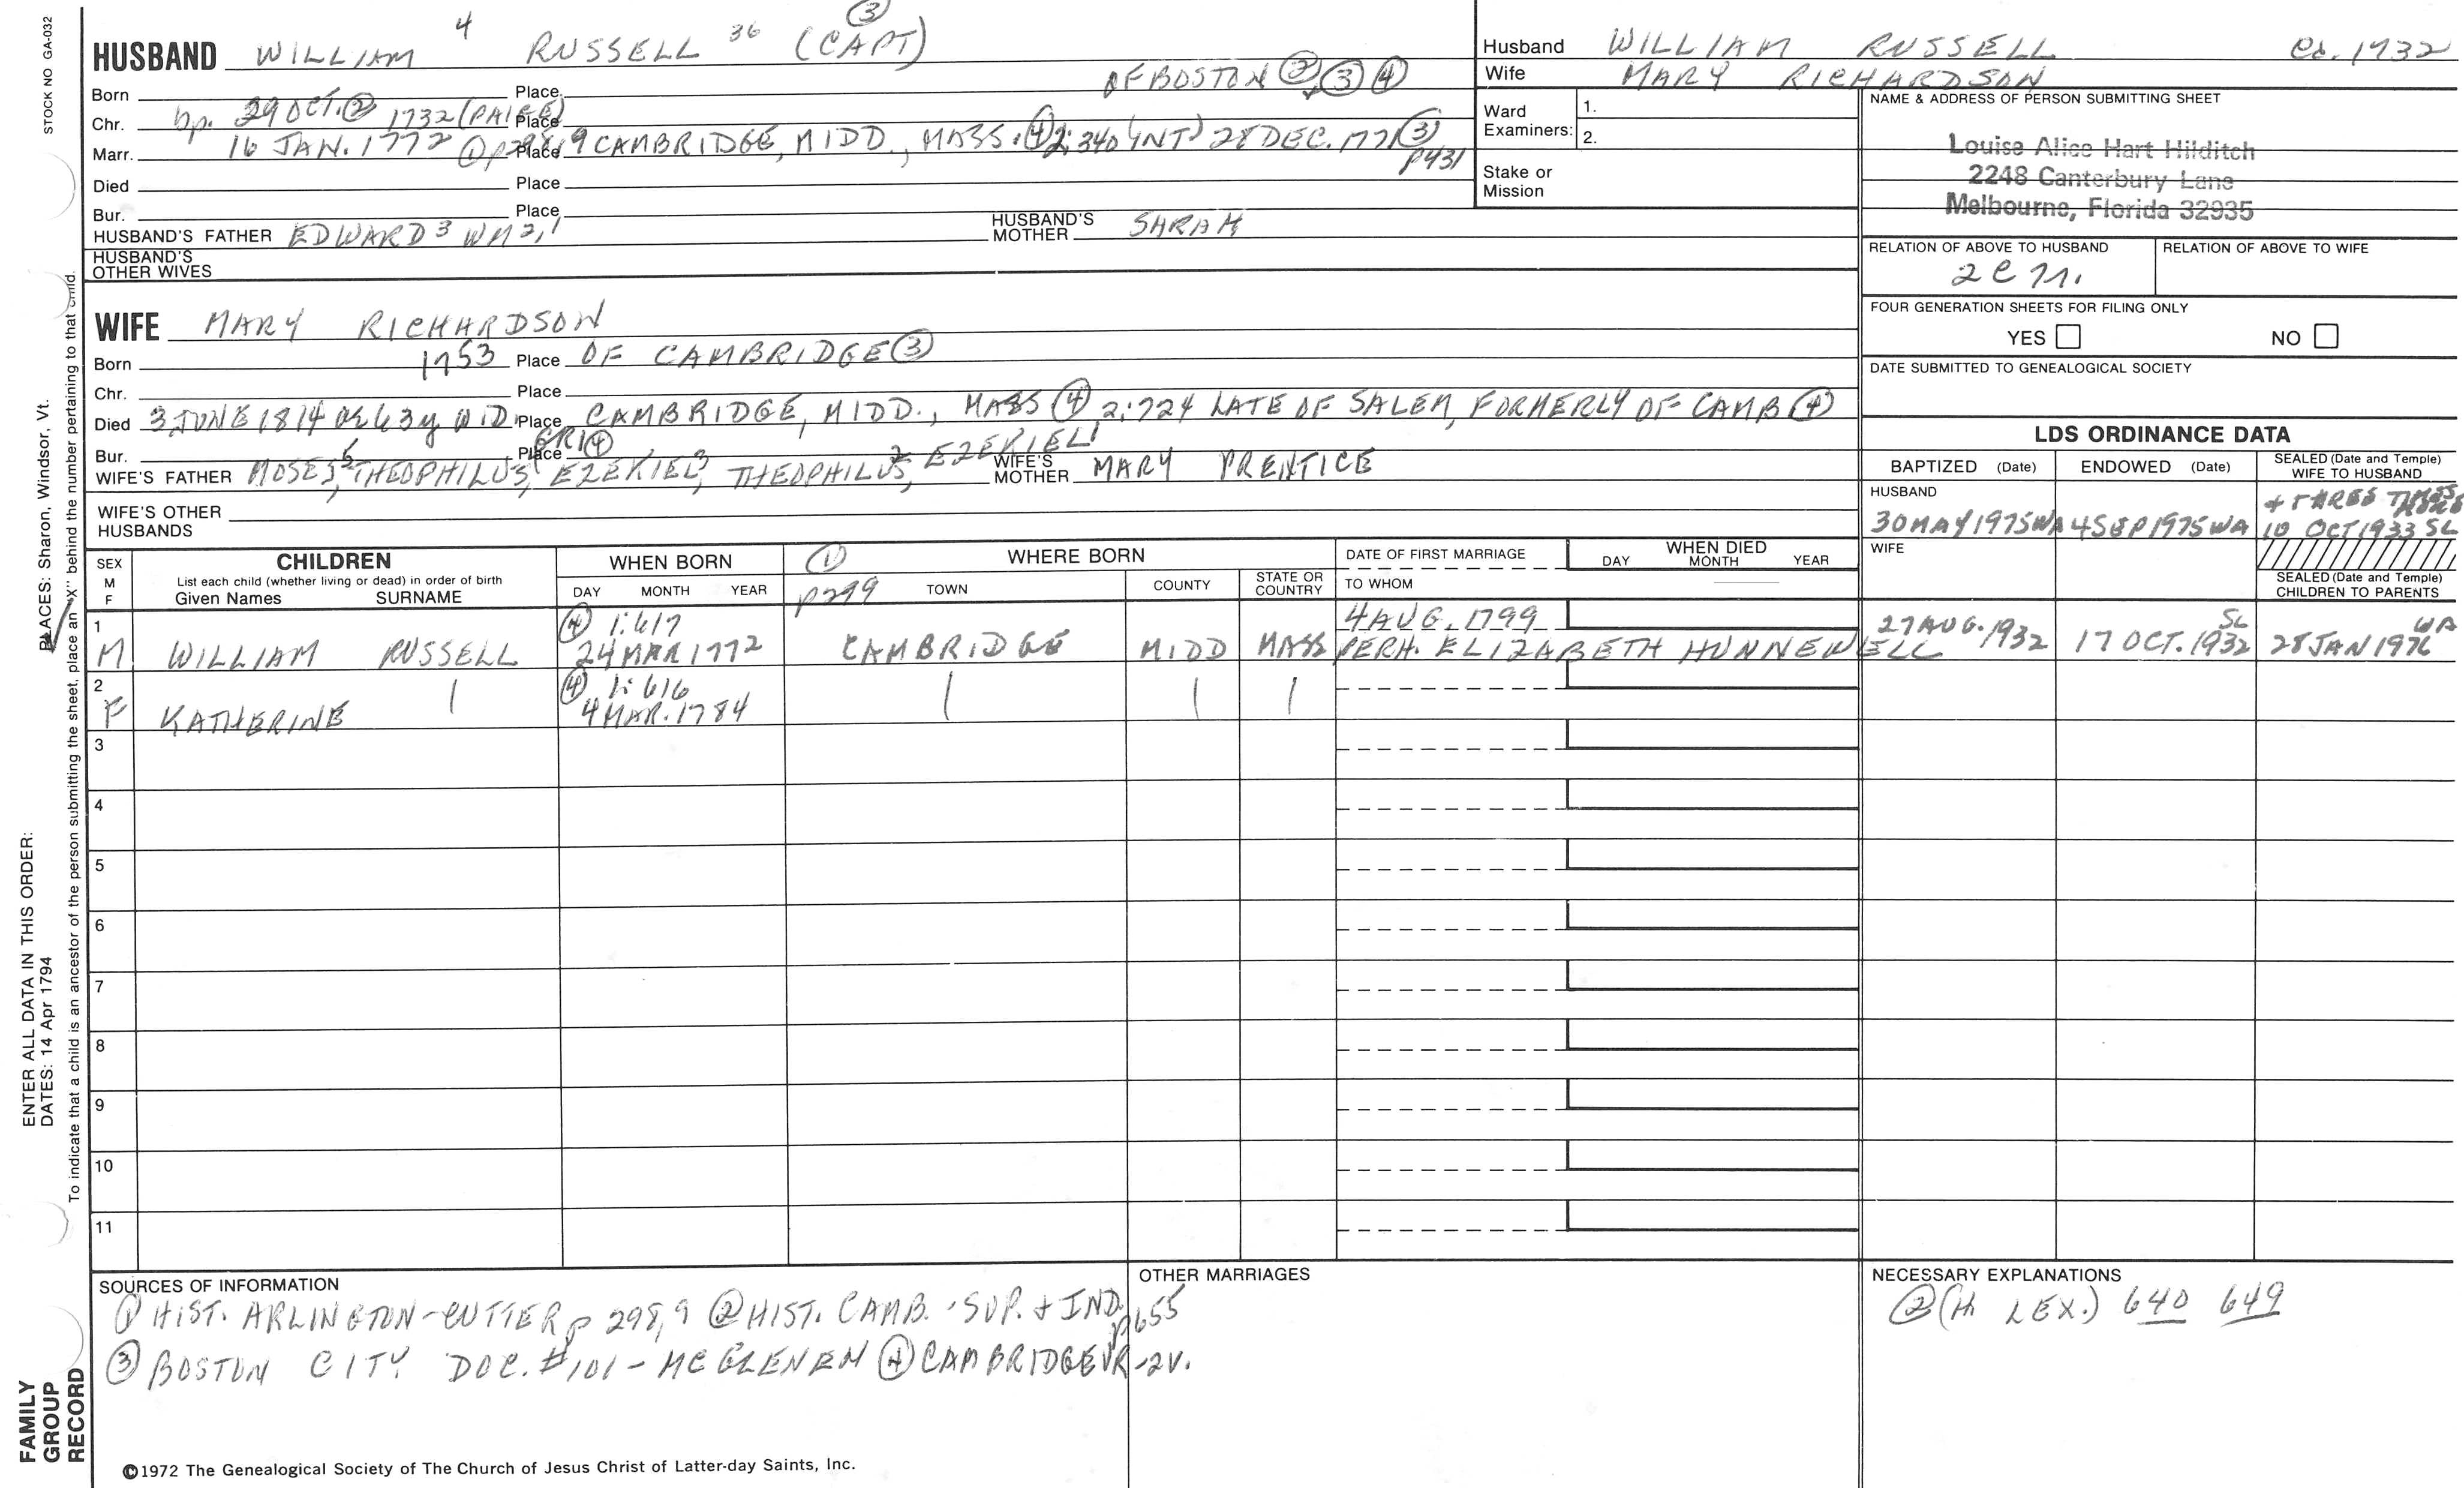 STOCK NO GA-032
HUSBAND WILLIAM 4 RUSSELL 36 (CAPT) ③
Born Place OF BOSTON ② ③ ④
Chr. bp. 29 OCT. ② 1732 (PAIGE) Place
Marr. 16 JAN. 1772 ① p298,9 Place CAMBRIDGE, MIDD., MASS. ④ 2:340 (INT) 28 DEC. 1771 ③ p431
Died Place
Bur. Place
HUSBAND'S FATHER EDWARD 3 WM 2,1 HUSBAND'S MOTHER SARAH
HUSBAND'S OTHER WIVES
WIFE MARY RICHARDSON
Born 1753 Place OF CAMBRIDGE ③
Chr. Place
Died 3 JUNE 1814 ae 63y WID. Place CAMBRIDGE, MIDD., MASS ④ 2:724 LATE OF SALEM, FORMERLY OF CAMB ④
Bur. Place GR1 ④
WIFE'S FATHER MOSES 5, THEOPHILUS, EZEKIEL 3, THEOPHILUS 2, EZEKIEL 1 WIFE'S MOTHER MARY PRENTICE
WIFE'S OTHER HUSBANDS
Husband WILLIAM RUSSELL 1732
Wife MARY RICHARDSON
Ward Examiners: 1.
2.
Stake or Mission
NAME & ADDRESS OF PERSON SUBMITTING SHEET
Louise Alice Hart Hilditch
2248 Canterbury Lane
Melbourne, Florida 32935
RELATION OF ABOVE TO HUSBAND RELATION OF ABOVE TO WIFE
FOUR GENERATION SHEETS FOR FILING ONLY
YES NO
DATE SUBMITTED TO GENEALOGICAL SOCIETY
LDS ORDINANCE DATA
BAPTIZED (Date) ENDOWED (Date) SEALED (Date and Temple) WIFE TO HUSBAND
HUSBAND
30 MAY 1975 WA 4 SEP 1975 WA 10 OCT 1933 SL
WIFE
SEALED (Date and Temple) CHILDREN TO PARENTS
SEX M F CHILDREN
List each child (whether living or dead) in order of birth
Given Names SURNAME
WHEN BORN
DAY MONTH YEAR
① p299 WHERE BORN
TOWN COUNTY STATE OR COUNTRY
DATE OF FIRST MARRIAGE
TO WHOM
WHEN DIED
DAY MONTH YEAR
1 ④ 1:617 4 AUG. 1799
M WILLIAM RUSSELL 24 MAR 1772 CAMBRIDGE MIDD MASS PERH. ELIZABETH HUNNEWELL 27 AUG. 1932 17 OCT. 1932 SL 28 JAN 1976 WA
2 ④ 1:616
F KATHERINE | 4 MAR. 1784 | | |
3
4
5
6
7
8
9
10
11
SOURCES OF INFORMATION
① HIST. ARLINGTON-CUTTER p 298,9 ② HIST. CAMB. SUP. + IND. p655
③ BOSTON CITY DOC. #101 - MCGLENEN ④ CAMBRIDGE VR-2V.
OTHER MARRIAGES
NECESSARY EXPLANATIONS
② (H LEX.) 640 649
©1972 The Genealogical Society of The Church of Jesus Christ of Latter-day Saints, Inc.
FAMILY GROUP RECORD
ENTER ALL DATA IN THIS ORDER:
DATES: 14 Apr 1794
PLACES: Sharon, Windsor, Vt.
To indicate that a child is an ancestor of the person submitting the sheet, place an "X" behind the number pertaining to that child.